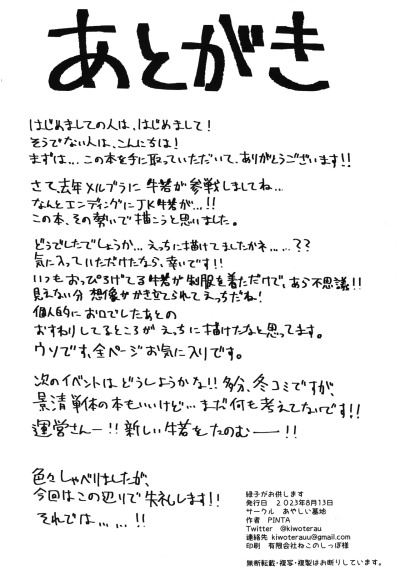 あとがき
はじめましての人は、はじめまして！
そうでない人は、こんにちは！
まずは...この本を手に取っていただいて、ありがとうございます!!
さて去年メルブラに牛若が参戦しましてね...
なんとエンディングにJK牛若が...!!
この本、その勢いで描こうと思いました。
どうでしたでしょうか...えっちに描けてましたかネ......??
気に入っていただけたなら、幸いです!!
いつもおっぴろげてる牛若が制服を着ただけで、あら不思議!!
見えない分想像がかき立てられてえっちだね！
個人的にお口でしたあとの
おすわりしてるところがえっちに描けたなと思ってます。
ウソです、全ページお気に入りです。
次のイベントはどうしようかな!!多分、冬コミですが、
景清単体の本もいいけど...まだ何も考えてないです!!
運営さんー!!新しい牛若をたのむ――!!
色々しゃべりましたが、
今回はこの辺りで失礼します!!
それでは......!!
緑子がお供します
発行日 2023年8月13日
サークル あやしい墓地
作者 PINTA
Twitter @kiwoterau
連絡先 kiwoterauu@gmail.com
印刷 有限会社ねこのしっぽ様
無断転載・複写・複製はお断りしています。